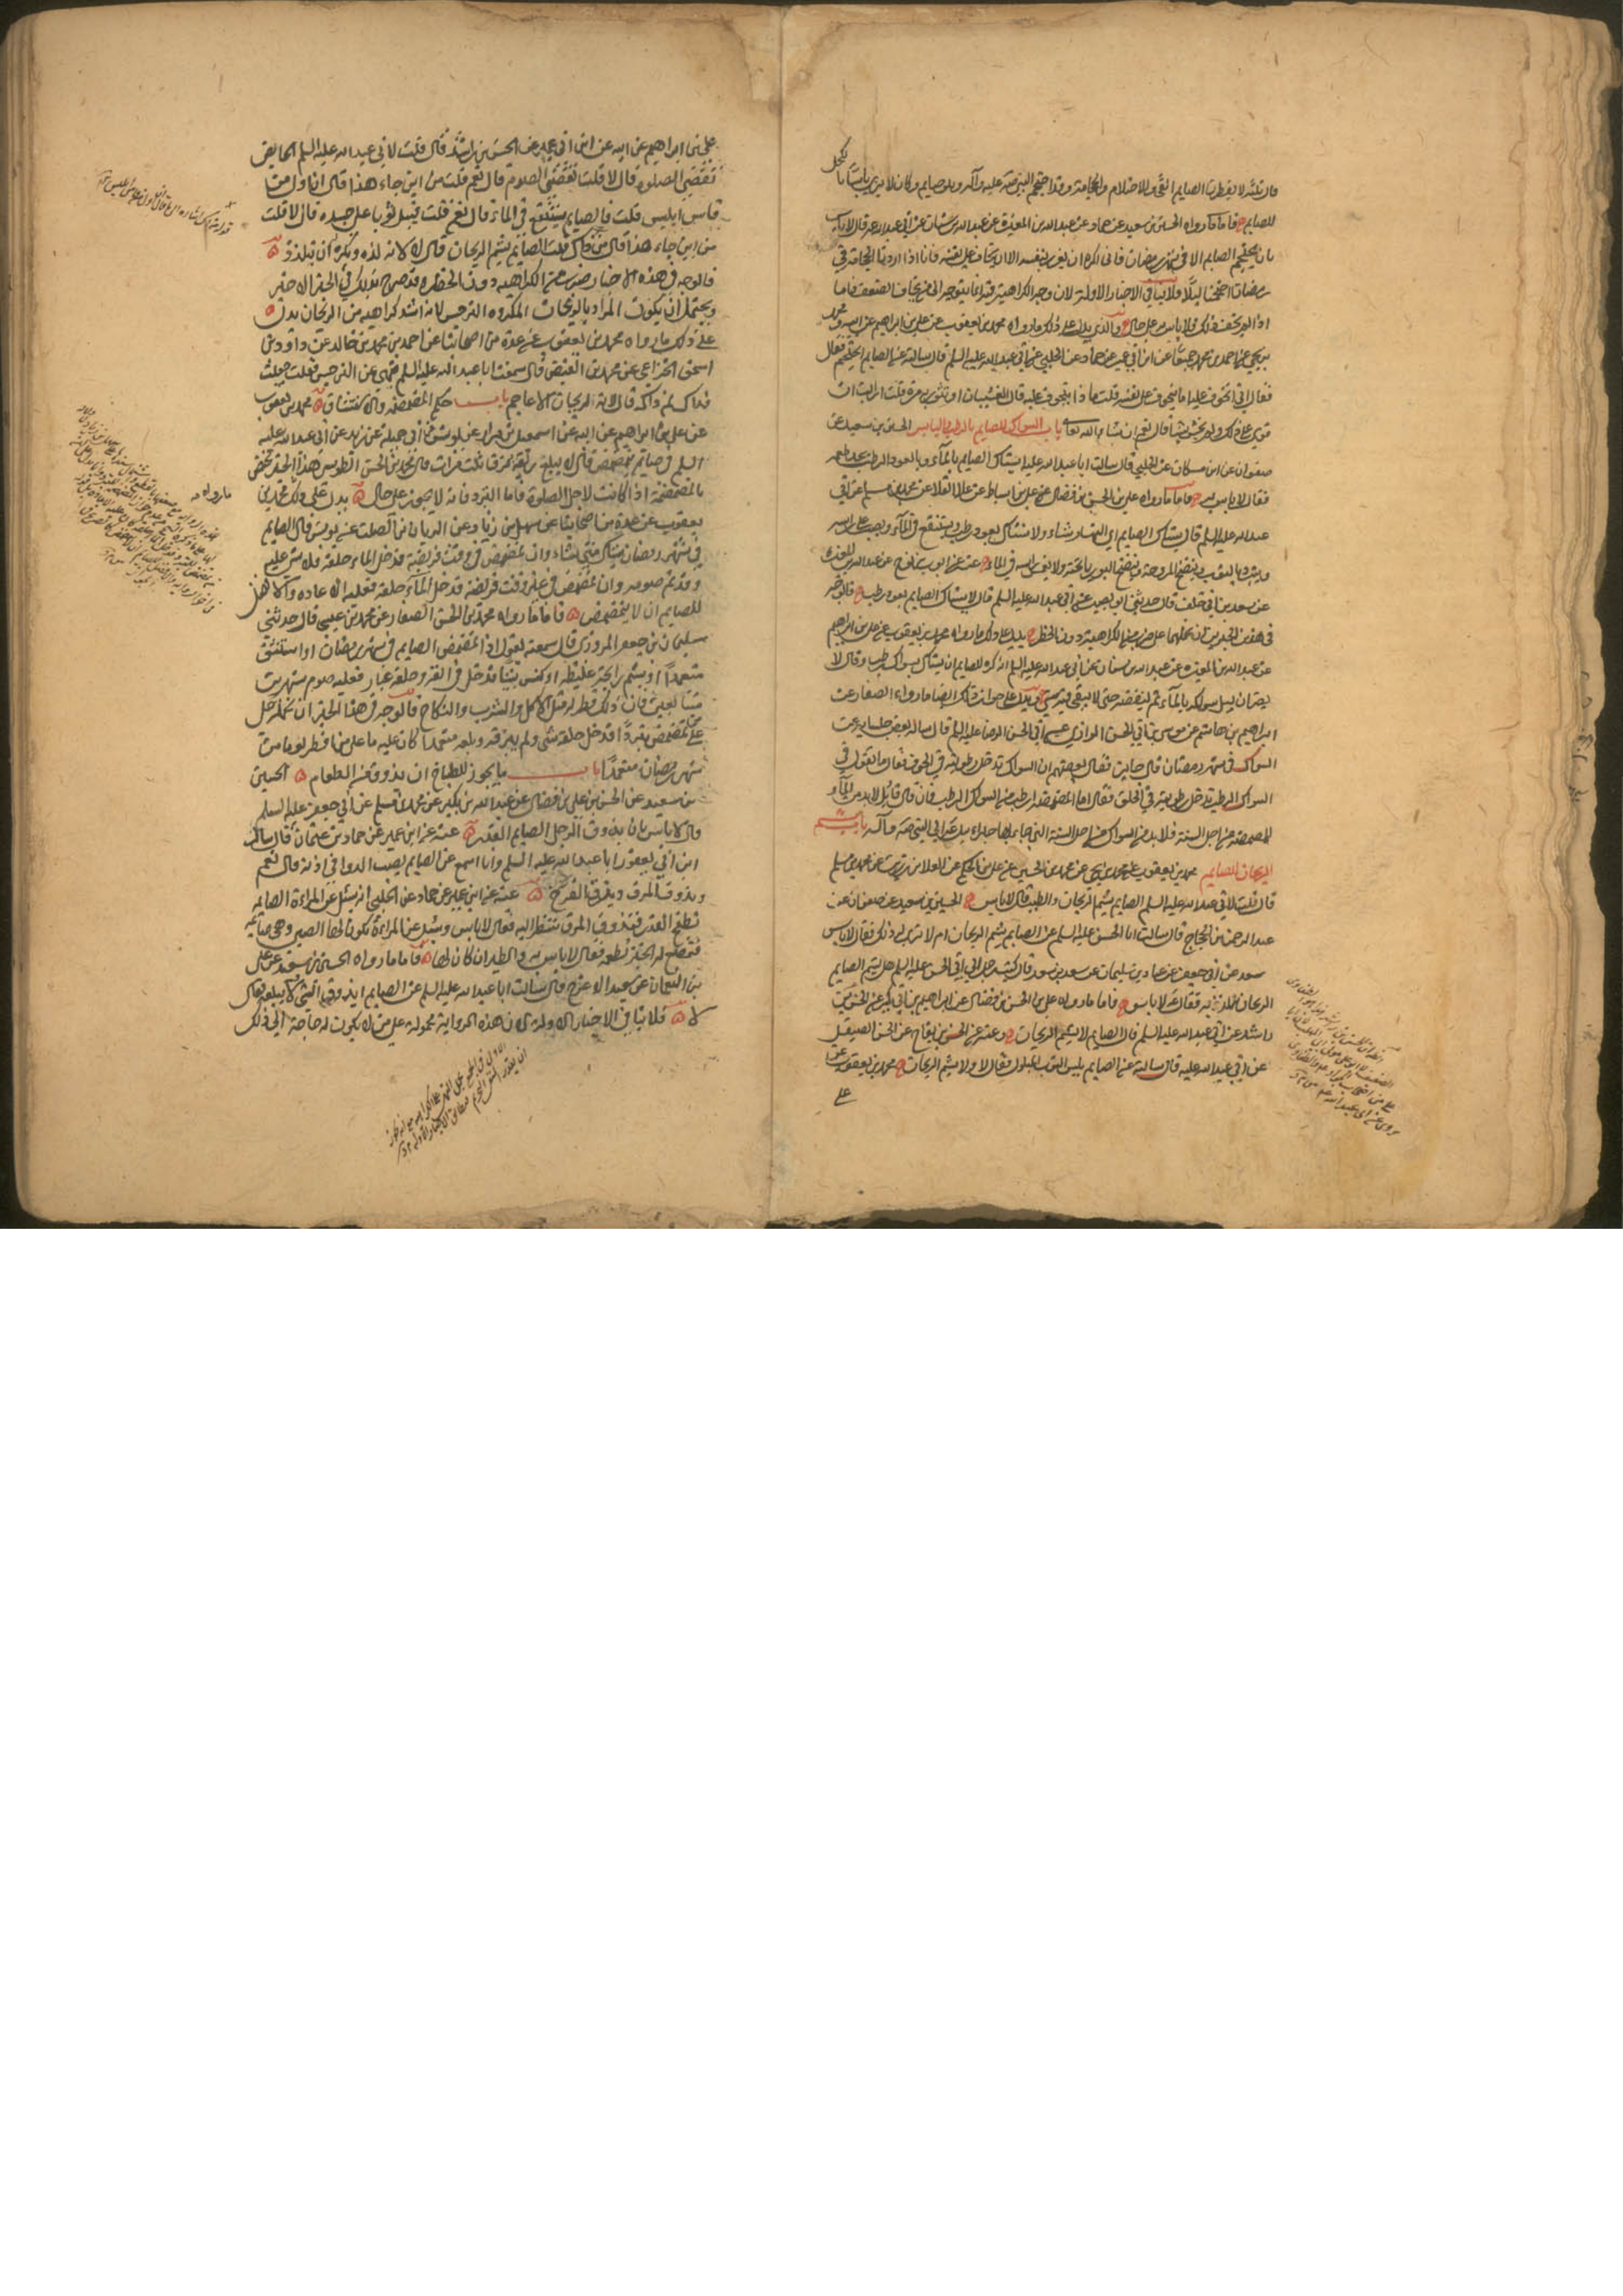 قال ثلثه لا يفطرن الصايم القي والاحتلام والحجامة وقد احتجم النبي صلى الله عليه وآله وهو صايم وكان لا يرى باسا بالكحل
للصايم فاما ما رواه الحسين بن سعيد عن حماد عن عبد الله بن المغيرة عن عبد الله بن سنان عن ابي عبد الله قال لا باس
بان يحتجم الصايم الا في شهر رمضان فاني اكره ان يغرر بنفسه الا ان يخاف على نفسه فانا اذا اردنا الحجامة في
رمضان احتجمنا ليلا فلا ينافي الاخبار الاولة لان وجه الكراهية فيه انما يتوجه الى من يخاف الضعف فاما
اذا لم يخف ذلك فلا باس به على حال والذي يدل على ذلك ما رواه محمد بن يعقوب عن علي بن ابراهيم عن ابيه ومحمد
بن يحيى عن احمد بن محمد جميعا عن ابن ابي عمير عن حماد عن الحلبي عن ابي عبد الله عليه السلم قال سالته عن الصايم ايحتجم فقال
فقال اني اتخوف عليه اما يتخوف على نفسه قلت ما ذا يتخوف عليه قال الغشيان او تثور به مرة قلت ارايت ان
قوي على ذلك ولم يخش شيا قال نعم ان شاء الله تعالى باب السواك للصايم بالرطب واليابس الحسين بن سعيد عن
صفوان عن ابن مسكان عن الحلبي قال سالت ابا عبد الله عليه ايستاك الصايم بالمآء وبالعود الرطب يجد طعمه
فقال لا باس به فاما ما رواه علي بن الحسن بن فضال عن علي بن اسباط عن علا القلا عن محمد بن مسلم عن ابي
عبد الله عليه السلم قال يستاك الصايم اي النهار شاء ولا يستاك بعود رطب ويستنقع في المآء ويصب على راسه
ويتبرد بالثوب وينضح المروحة وينضح البوريا تحته ولا يغمس راسه في الماء عنه عن ايوب بن نوح عن عبد الله بن المغيرة
عن سعد بن ابي خلف قال حدثني ابو بصير عن ابي عبد الله عليه السلم قال لا يستاك الصايم بعود رطب فالوجه
في هذين الخبرين ان نحملهما على ضرب من الكراهية دون الحظر يدل على ذلك ما رواه محمد بن يعقوب عن علي بن ابراهيم
عن عبد الله بن المغيره عن عبد الله بن سنان عن ابي عبد الله عليه السلم انه كره للصايم ان يستاك بسواك رطب وقال لا
يضر ان يبل سواكه بالمآء ثم ينفضه حتى لا يبقى فيه شي ويدل على جواز ذلك ايضا ما رواه الصفار عن
ابراهيم بن هاشم عن موسى بن ابي الحسن الرازي عن ابي الحسن الرضا عليه السلم قال ساله بعض جلسايه عن
السواك في شهر رمضان قال جايز فقال بعضهم ان السواك تدخل رطوبته في الجوف فقال ما تقول في
السواك الرطب تدخل رطوبته في الحلق فقال الماء للمضمضة ارطب من السواك الرطب فان قال قائل لا بد من المآء
للمضمضة من اجل السنة فلا بد من السواك من اجل السنة التي جاء بها جبرائيل عم الى النبي صلى الله عليه وآله باب شم
الريحان للصايم محمد بن يعقوب عن محمد بن يحيى عن محمد بن الحسين عن علي بن الحكم عن العلا بن رزين عن محمد بن مسلم
قال قلت لابي عبد الله عليه السلم الصايم يشم الريحان والطيب قال لا باس الحسين بن سعيد عن صفوان عن
عبد الرحمن بن الحجاج قال سالت ابا الحسن عليه السلم عن الصايم يشم الريحان ام لا ترى له ذلك فقال لا باس
سعد عن ابي جعفر عن عباد بن سليمان عن سعد بن سعد قال كتب رجل الى ابي الحسن عليه السلم هل يشم الصايم
الريحان يتلذذ به فقال عم لا باس به فاما ما رواه علي بن الحسن بن فضال عن ابراهيم بن ابي بكر عن الحسن بن
راشد عن ابي عبد الله عليه السلم قال الصايم لا يشم الريحان وعنه عن الحسن بن بقاح عن الحسن الصيقل
عن ابي عبد الله عليه قال سالته عن الصايم يلبس الثوب المبلول فقال لا ولا يشم الريحان محمد بن يعقوب عن
علي
علي بن ابراهيم عن ابيه عن ابن ابي عمير عن الحسن بن راشد قال قلت لابي عبد الله عليه السلم الحايض
تقضي الصلوه قال لا قلت تقضي الصوم قال نعم قلت من اين جاء هذا قال ان اول من
قاس ابليس قلت فالصايم يستنقع في الماء قال نعم قلت فيبل ثوبا على جسده قال لا قلت
من اين جاء هذا قال من ذاك قلت الصايم يشم الريحان قال لا لانه لذه ويكره ان يتلذذ
فالوجه في هذه الاخبار ضرب من الكراهيه دون الحظر وقد صرح بذلك في الخبر الاخير
ويحتمل ان يكون المراد بالريحان المكروه النرجس لانه اشد كراهيه من الريحان يدل
على ذلك ما رواه محمد بن يعقوب عن عدة من اصحابنا عن احمد بن محمد بن خالد عن داود بن
اسحق الحذاء عن محمد بن الفيض قال سمعت ابا عبد الله عليه السلم نهى عن النرجس فقلت جعلت
فداك لم ذاك قال لانه ريحان الاعاجم باب حكم المضمضه والاستنشاق محمد بن يعقوب
عن علي بن ابراهيم عن ابيه عن اسمعيل بن مرار عن يونس عن ابي جميلة عن زيد عن ابي عبد الله عليه
السلم في صايم يتمضمض قال لا يبلع ريقه حتى يبزق ثلث مرات قال محمد بن الحسن الطوسي هذا الخبر مختص
بالمضمضة اذا كانت لاجل الصلوة فاما التبرد فانه لا يجوز على حال يدل على ذلك محمد بن
يعقوب عن عدة من اصحابنا عن سهل بن زياد عن الريان بن الصلت عن يونس قال الصايم
في شهر رمضان يستاك متى شاء وان تمضمض في وقت فريضه فدخل الماء حلقه فلا شي عليه
وقد تم صومه وان تمضمض في غير وقت فريضه فدخل المآء حلقه فعليه الاعاده والافضل
للصايم ان لا يتمضمض فاما ما رواه محمد بن الحسن الصفار عن محمد بن عيسى قال حدثني
سليمان بن جعفر المروزي قال سمعته يقول اذا تمضمض الصايم في شهر رمضان او استنشق
متعمدا او شم رايحة غليظه او كنس بيتا فدخل في انفه وحلقه غبار فعليه صوم شهرين
متتابعين فان ذلك فطر له مثل الاكل والشرب والنكاح فالوجه في هذا الخبر ان نحمله على
من تمضمض تبردا فدخل حلقه شي ولم يبزقه وبلعه متعمدا كان عليه ما على من افطر يوما من
شهر رمضان متعمدا باب ما يجوز للطباخ ان يذوق من الطعام الحسين
بن سعيد عن الحسن بن علي بن فضال عن عبد الله بن بكير عن محمد بن مسلم عن ابي جعفر عليه السلم
قال لا باس بان يذوق الرجل الصايم القدر عنه عن ابن ابي عمير عن حماد بن عثمان قال سال
ابن ابي يعفور ابا عبد الله عليه السلم وانا اسمع عن الصايم يصب الدوا في اذنه قال نعم
ويذوق المرق ويزق الفرخ عنه عن ابن ابي عمير عن حماد عن الحلبي انه سئل عن المراءة الصايمه
تطبخ القدر فتذوق المرق تنظر اليه فقال لا باس وسئل عن المراءة يكون لها الصبي وهي صايمه
فتمضغ له الخبز تطعمه فقال لا باس به والطير ان كان لها فاما ما رواه الحسين بن سعيد عن علي
بن النعمان عن سعيد الاعرج قال سالت ابا عبد الله عليه السلم عن الصايم ايذوق الشي ولا يبلعه فقال
لا فلا ينافي الاخبار الاوله لان هذه الرواية محمولة على من لا يكون له حاجة الى ذلك